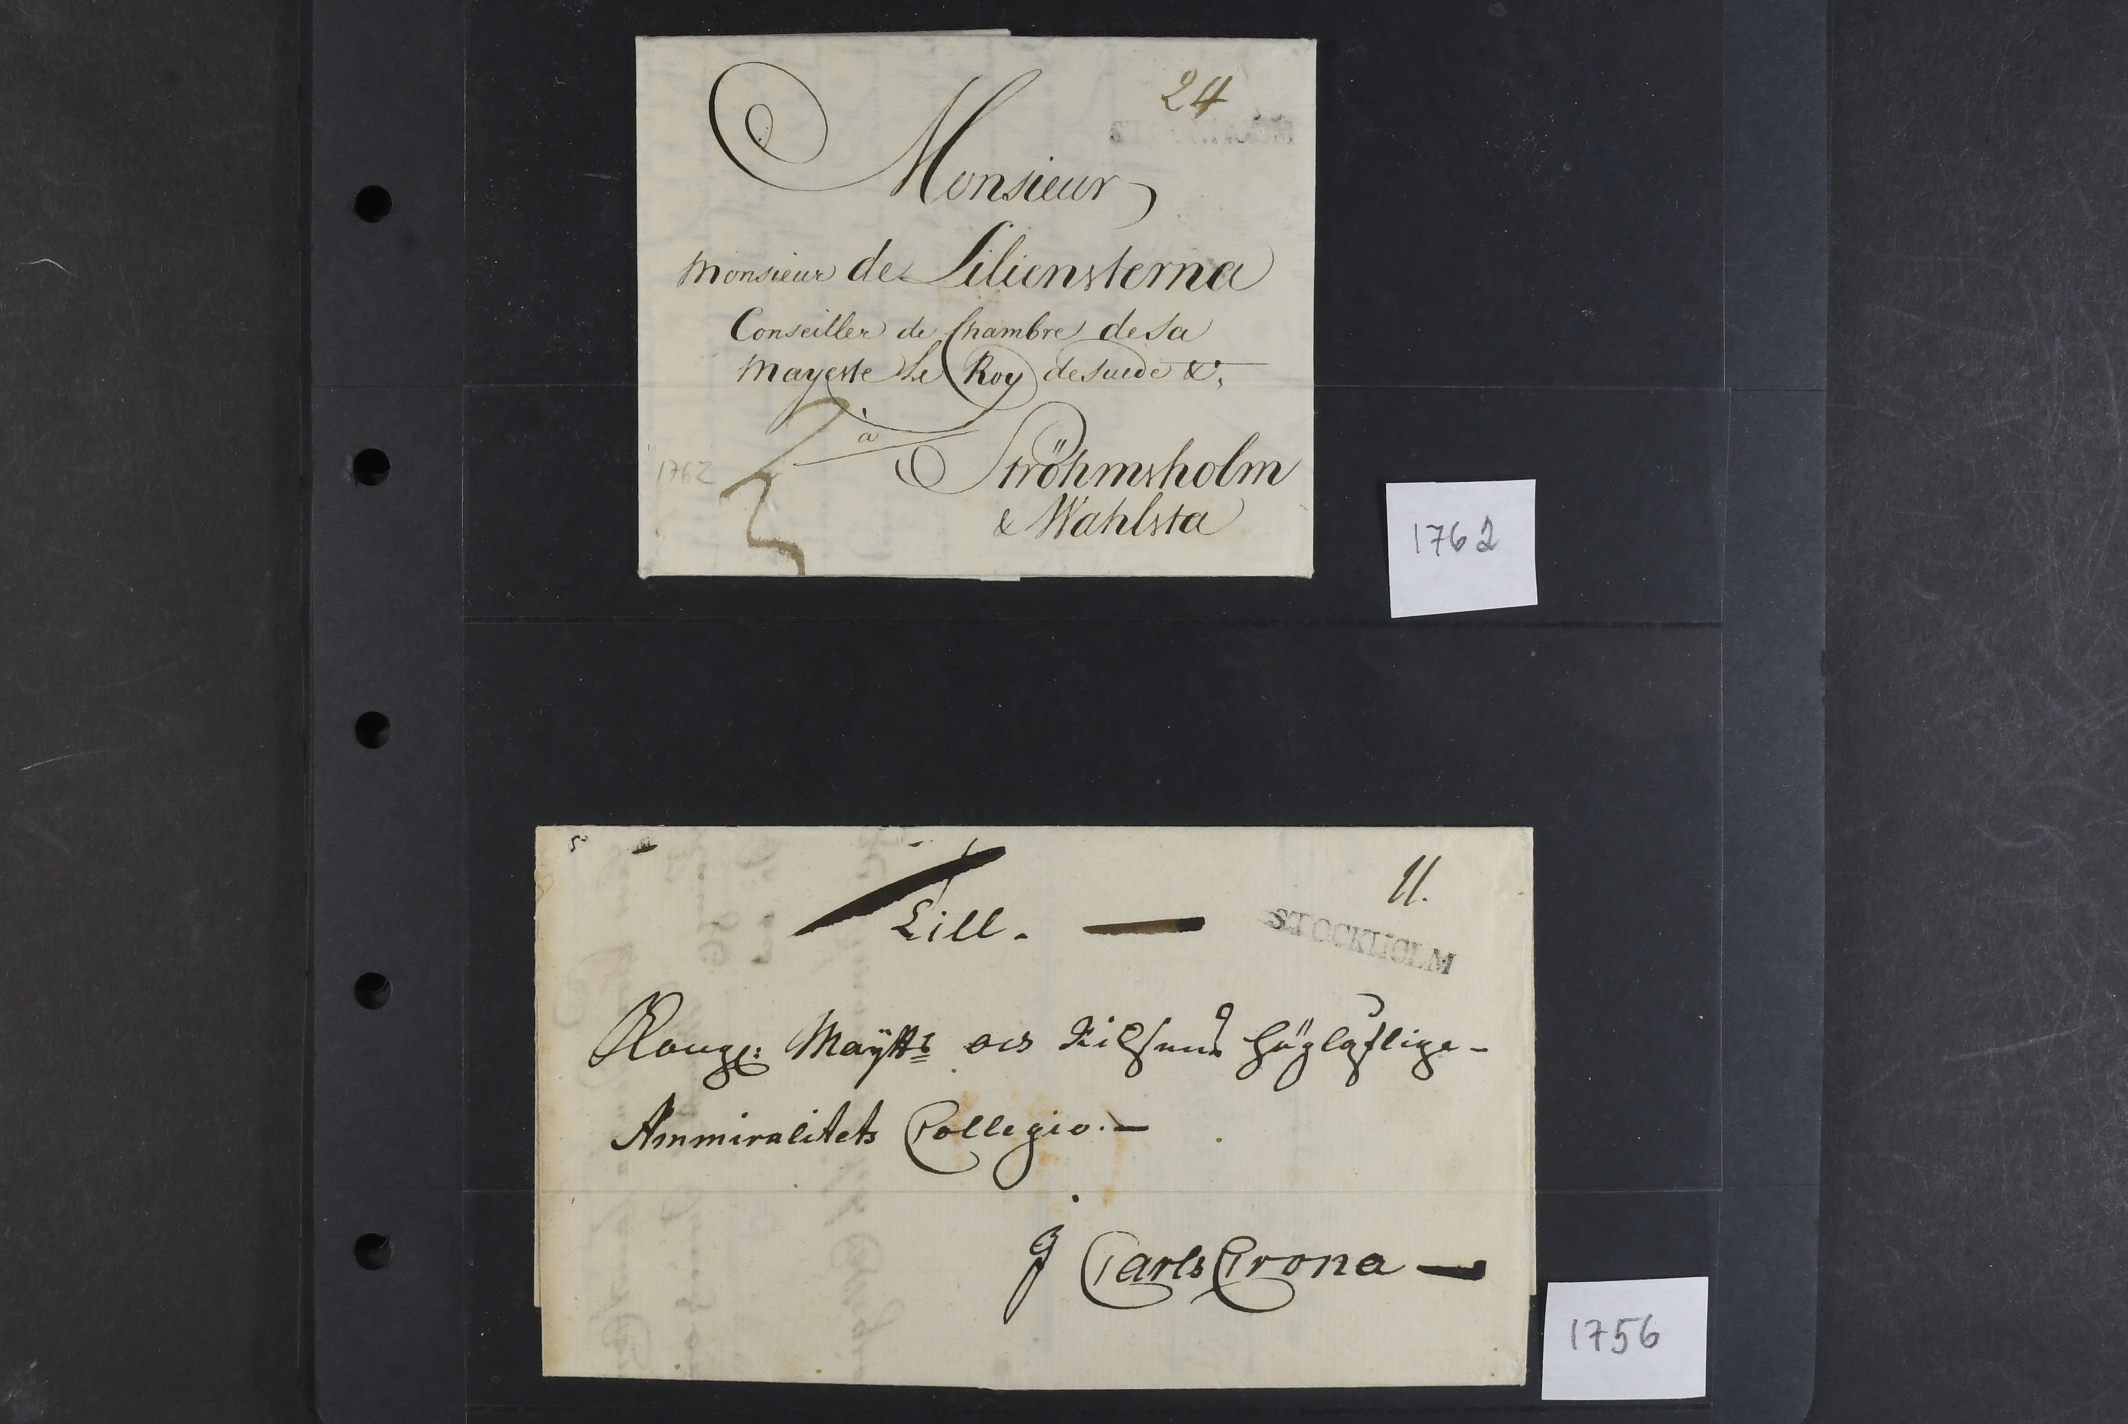 24
Monsieur
Monsieur de Liliensterna
Conseiller de Chambre de Sa
Mayeste Le Roy de Suede &c.
à
Ströhmsholm
& Wahlsta
1762
1762
11.
Till.
STOCKHOLM
Kongl: Maÿtts och Riksens Höglofliga
Ammiralitets Collegio.
J CarlsCrona
1756